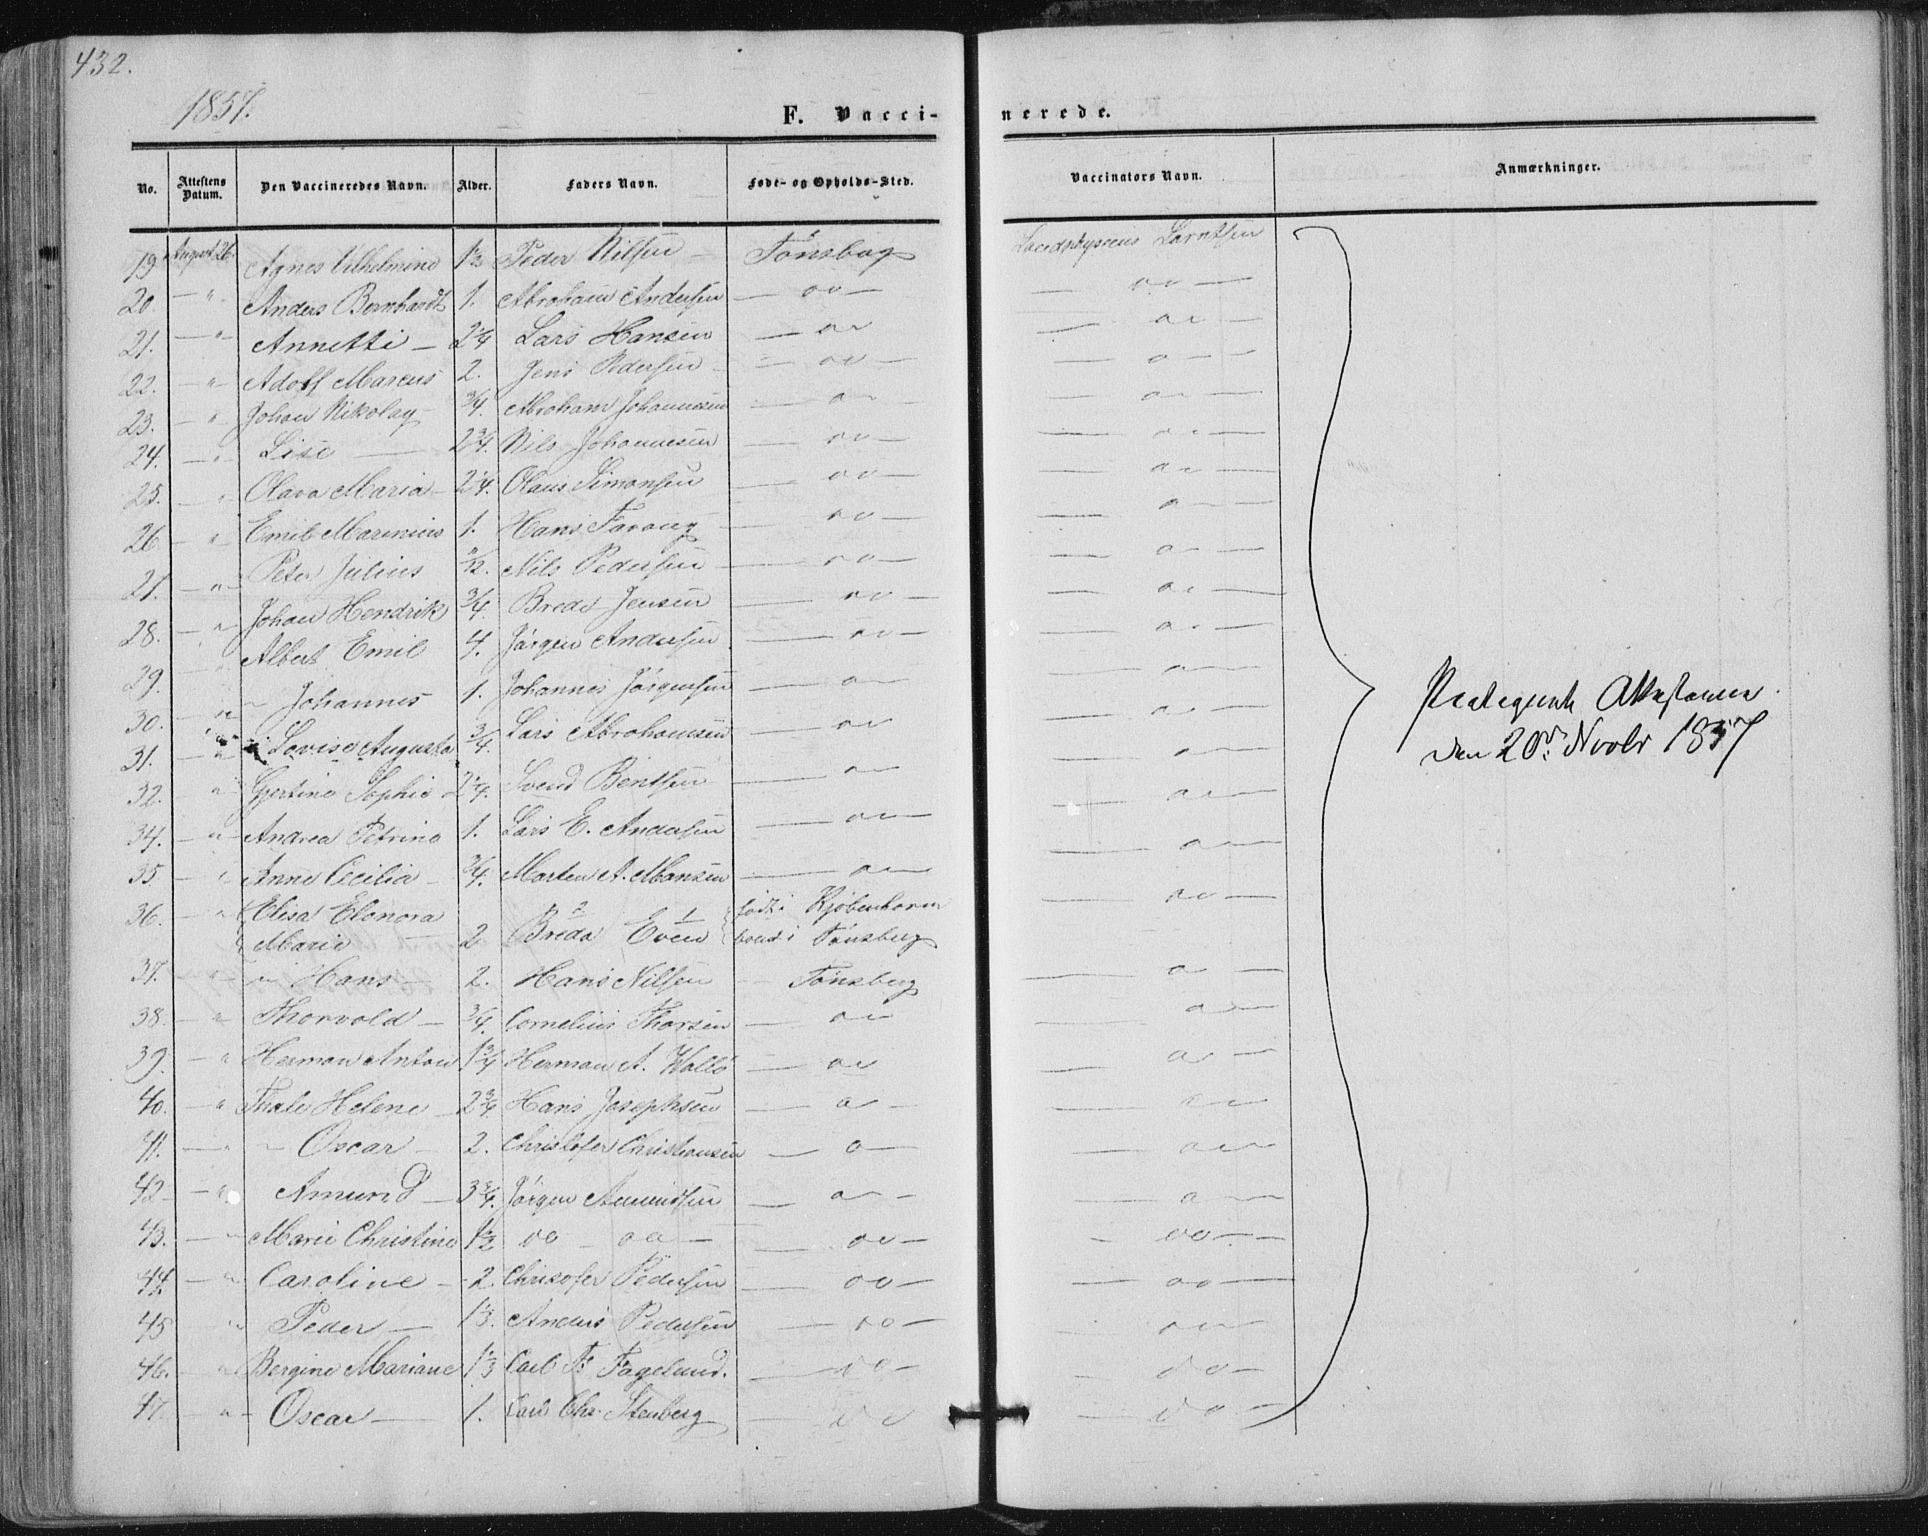 432.
1857.
F. Vacci-
nerede.
No. Attestens Datum. Den Vaccineredes Navn. Alder. Faders Navn. Føde- og Opholds-Sted. Vaccinators Navn. Anmærkninger.
19 August 26. Agnes Vilhelmine Peder Nilsen Tønsberg
20. — " Anders Bernhardt 1. Abraham Andersen — do —
21. — " Annette — 2 1/4 Lars Hansen — do
22. — " Adolf Marcus 2. Jens Pedersen — do —
23. — " Johan Nikolay 3/4. Abraham Johannesen — do —
24. — " Lise — 2 3/4. Nils Johannesen — do —
25. " Olava Maria 2 1/4. Olaus Simonsen — do —
26 — " Emil Marinius 1. Hans — do —
27. — " Peter Julius Nils Pedersen — do —
28. — " Johan Hendrik 3/4. Brede Jensen — do —
29. " Albert Emil 4. Jørgen Andersen — do —
30. " Johannes 1. Johannes Jørgensen — do —
31. " Lovise Augusta 3/4. Lars Abrahamsen — do
32. " Gjertine Sophie 2 1/4. Svend Bentsen — do —
34. — " Andrea Petrine 1. Lars E. Andersen — do —
35. " Anne Cecilia — 3/4. Morten A. Hansen — do —
36. — " Elisa Elonora født i Kjøbenhavn
Marie — 2 Breda Even boend i Tønsberg
37. " Hans — 2. Hans Nilsen Tønsberg
38. — " Thorvald — 3/4. Cornelius Thorsen — do
39. — " Herman Anton 1 3/4 Herman A. — do
40. — " Thale Helene 2 3/4. Hans Josephsen — do —
41. — " Oscar — 2. Christofer Christiansen — do —
42 — " Amund — 3 3/4. Jørgen Amundsen — do —
43. — " Marie Christine 1 1/2 do — do — — do —
44. — " Caroline — 2. Chrisofer Pedersen — do —
45 " Peder — 1 1/3. Anders Pedersen — do —
46. — " Bergine Mariane 1 1/3 Carl Fr. Fagelund. — do —
47 — " Oscar — 1. Carl Chr. Stenberg do
Attesterne
den 20de Novbr 1857